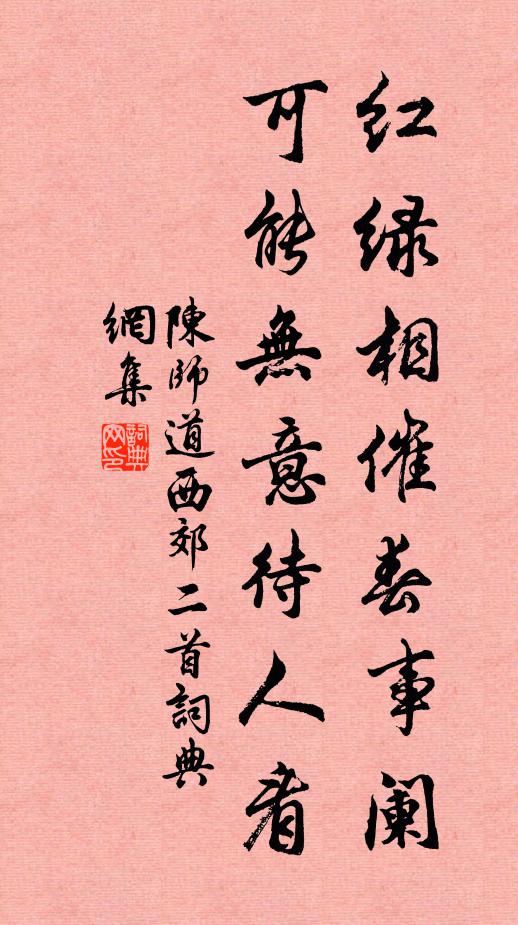 红绿相催春事阑
可能無意待人看
陳師道西郊二首詞典
網集
詞典
网印